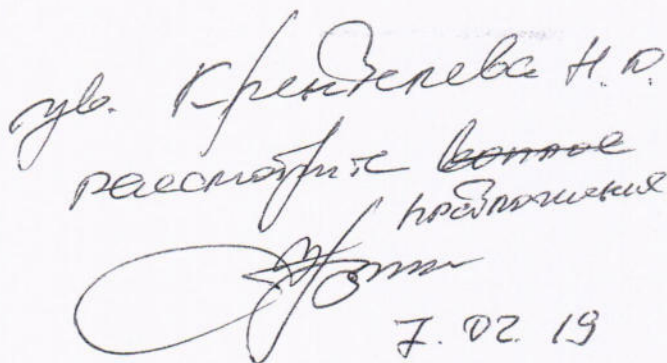 ув. Кренделева Н.Ю.
рассмотрите
предложение
7.02.19